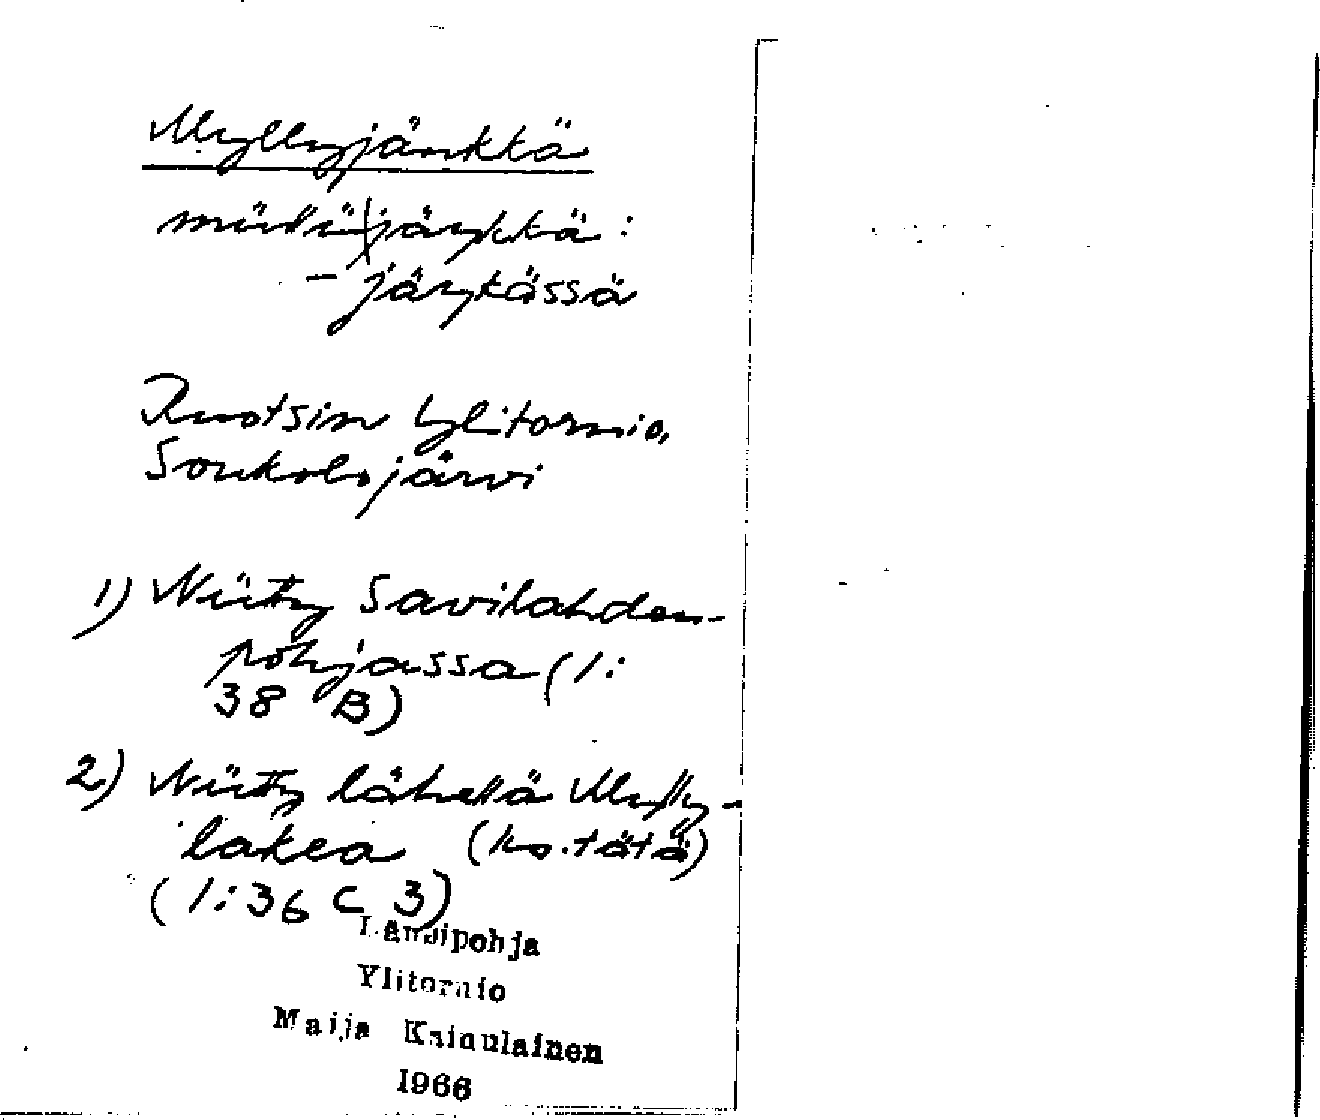 Myllyjänkkä
jäŋkkä:
- jäŋkässä
Ruotsin Ylitornio,
Soukolojärvi
1) Niitty Savilahden-
pohjassa (1:
38 B)
2) Niitty lähellä Mylly-
lakea (ks. tätä)
(1:36 C 3)
Lansipohja
Ylitornio
Maija Kainulainen
1966